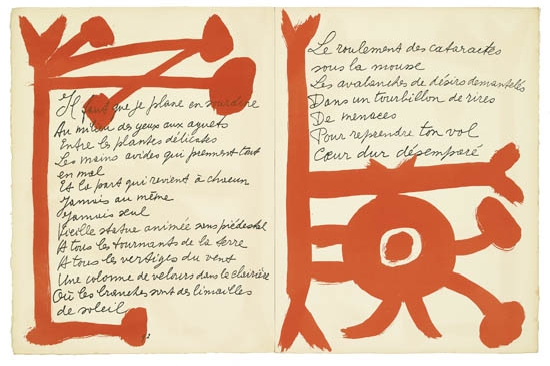 Il faut que je plane en sourdine
Au milieu des yeux aux aguets
Entre les plantes délicates
Les mains avides qui prennent tout
en mal
Et la part qui revient à chacun
Jamais au même
Jamais seul
Vieille statue animée sans piédestal
A tous les tournants de la terre
A tous les vertiges du vent
Une colonne de velours dans la clairière
Où les branches sont des limailles
de soleil
Le roulement des cataractes
sous la mousse
Les avalanches de désirs démantelés
Dans un tourbillon de rires
De menaces
Pour reprendre ton vol
Cœur dur désemparé